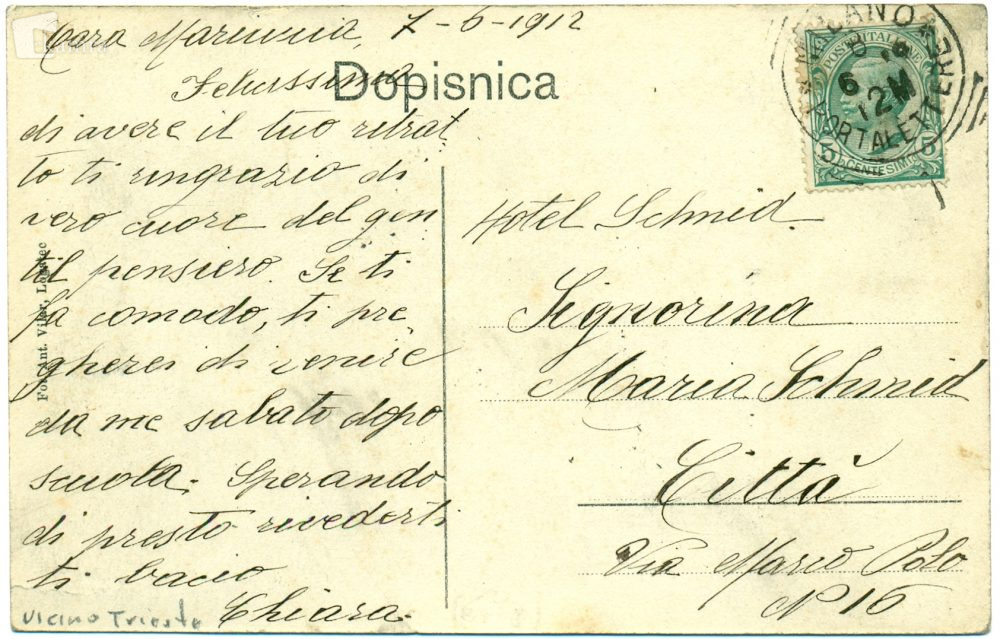 Cara Mariuccia, 7-6-1912
Felicissima
di avere il tuo ritrat
to ti ringrazio di
vero cuore del gen
til pensiero. Se ti
fa comodo, ti pre,
gherei di venire
da me sabato dopo
scuola. Sperando
di presto rivederti
ti bacio
Chiara.
vicino Trieste
Dopisnica
Fot. Ant. Logatec
MILANO
6
12M
PORTALETTERE
POSTE ITALIANE
5 CENTESIMI 5
Hotel Schmid
Signorina
Maria Schmid
Città
Via Marco Polo
N 16